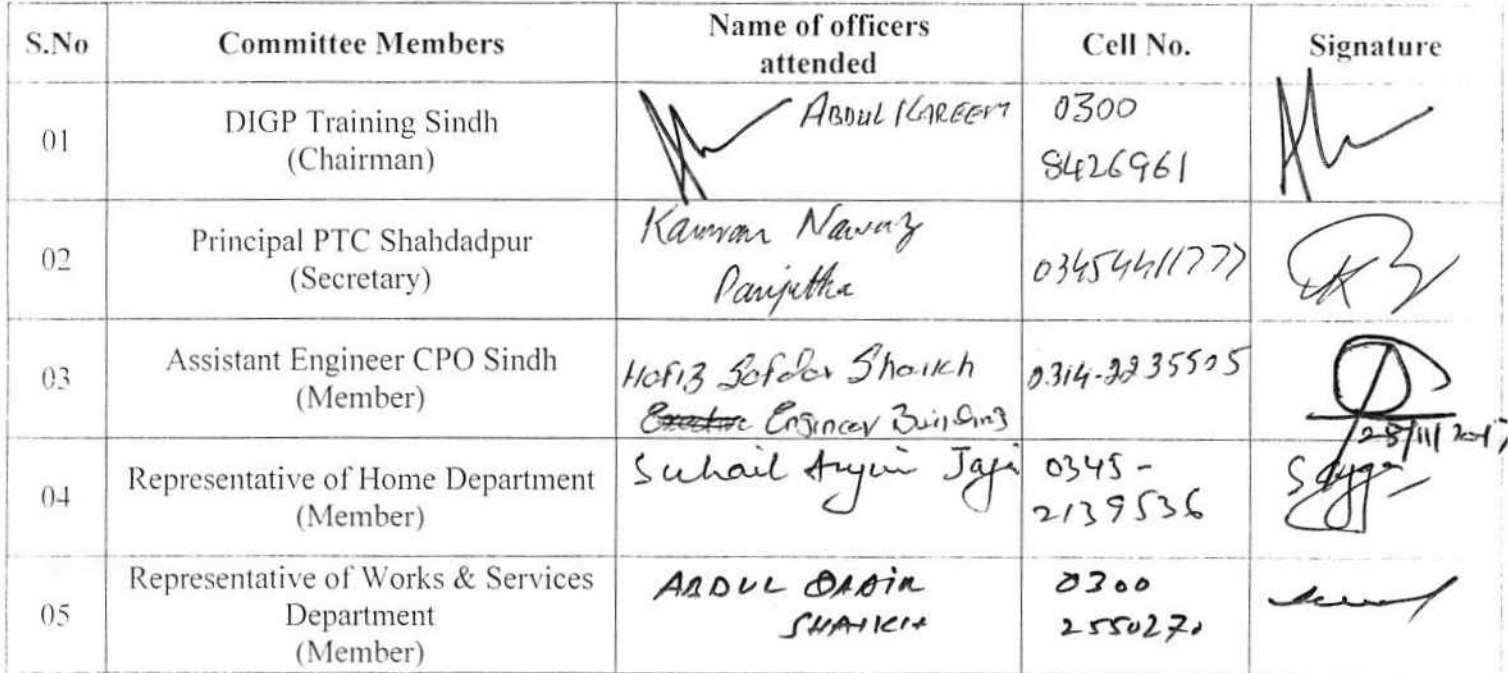 S.No Committee Members Name of officers attended Cell No. Signature
01 DIGP Training Sindh (Chairman) ABDUL KAREEM 0300 8426961
02 Principal PTC Shahdadpur (Secretary) Kamran Nawaz 03454411777
03 Assistant Engineer CPO Sindh (Member) Hafiz Safdar Shaikh 0314-2235505
Engineer Building
28/11/2017
04 Representative of Home Department (Member) Suhail 0345-2139536
05 Representative of Works & Services Department (Member) ABDUL QADIR SHAIKH 0300 2550270